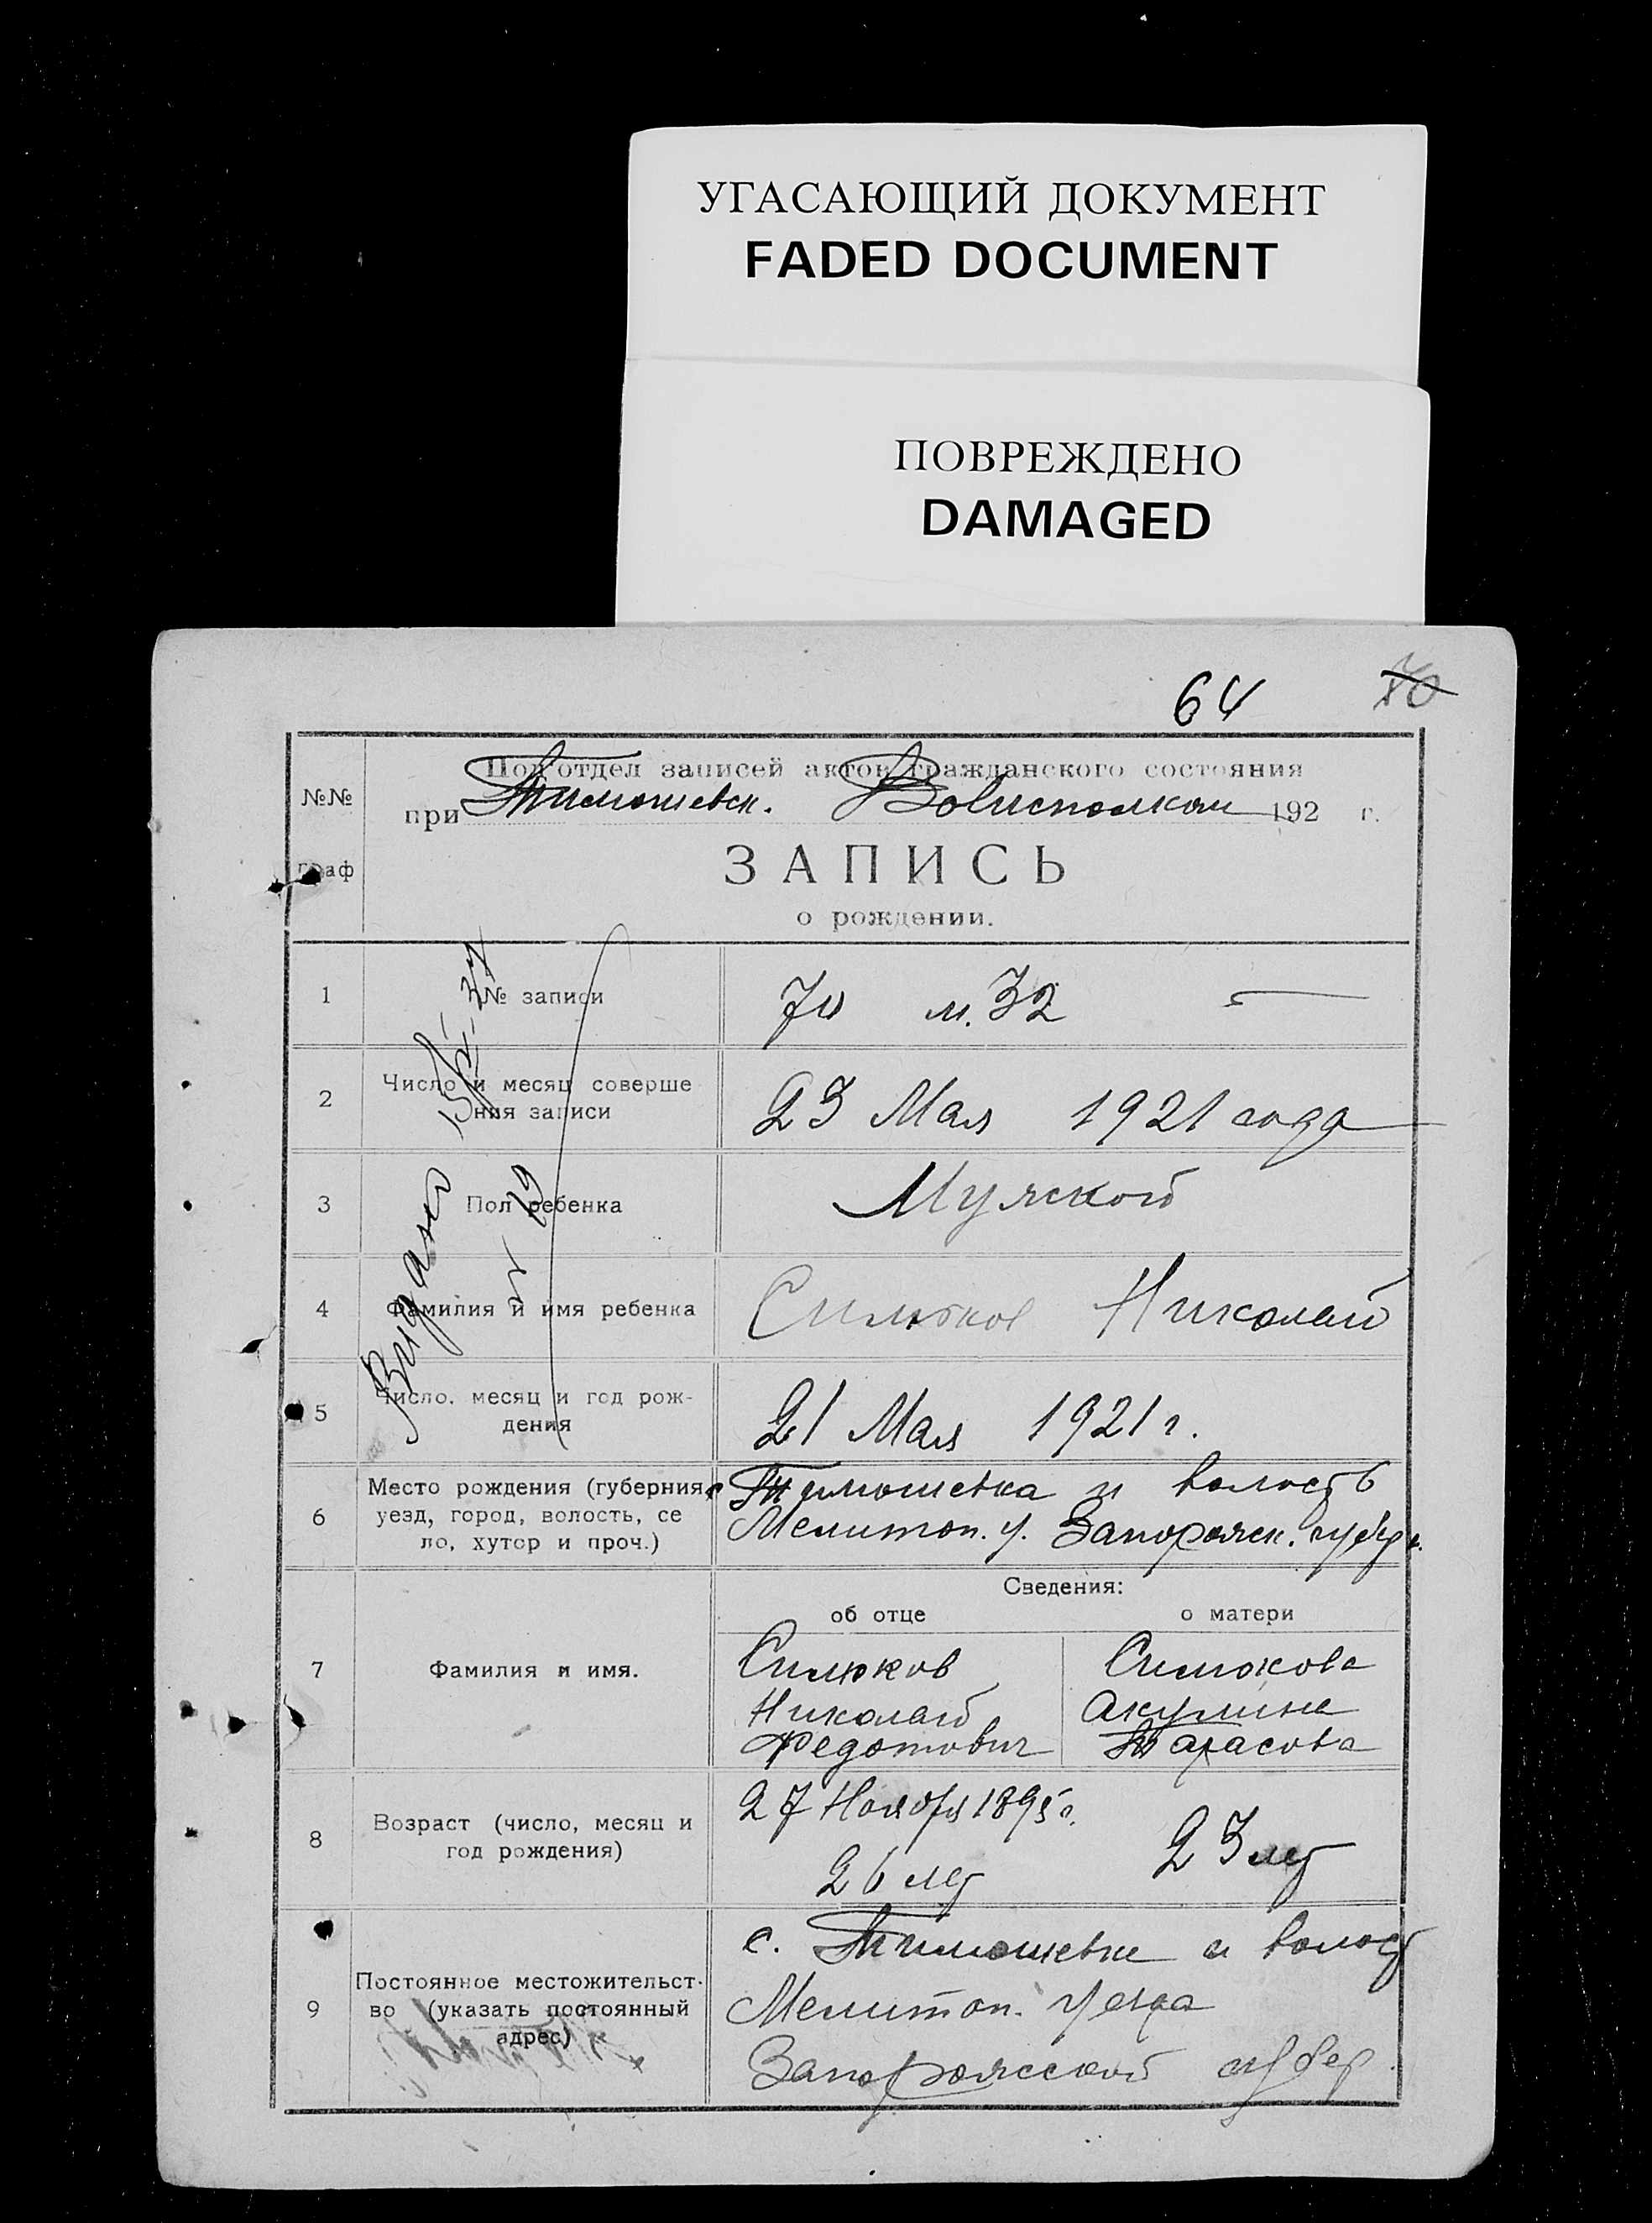 УГАСАЮЩИЙ ДОКУМЕНТ
FADED DOCUMENT
ПОВРЕЖДЕНО
DAMAGED
64
70
№№
граф
Подотдел записей актов гражданского состояния
при Тимошевск. Волисполком 192 г.
ЗАПИСЬ
о рождении.
1
№ записи
70 м. 32
2
Число и месяц соверше
ния записи
23 Мая 1921 года
3
Пол ребенка
Мужской
4
Фамилия и имя ребенка
Силюков Николай
5
Число. месяц и год рож-
дения
21 Мая 1921 г.
6
Место рождения (губерния,
уезд, город, волость, се
ло, хутор и проч.)
с Тимошевка и волость
Мелитоп. у. Запорожск. губер.
Сведения:
об отце
о матери
7
Фамилия и имя.
Силюков
Николай
Федотович
Силюкова
Акулина
Тарасова
8
Возраст (число, месяц и
год рождения)
27 Ноября 1895 г.
26 лет
23 лет
9
Постоянное местожительст-
во (указать постоянный
адрес)
с. Тимошевке и волост
Мелитоп. уезда
Запорожской губер.
Видано